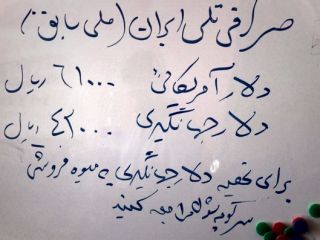 صرافی تلی ایران (ملی سابق)
دلار آمریکائی ۶۱۰۰۰ ریال
دلار جهانگیری ۴۲۰۰۰ ریال
برای تخفیه دلار جهانگیری به میوه فروشی
سر کوچه پشتی مراجعه کنید